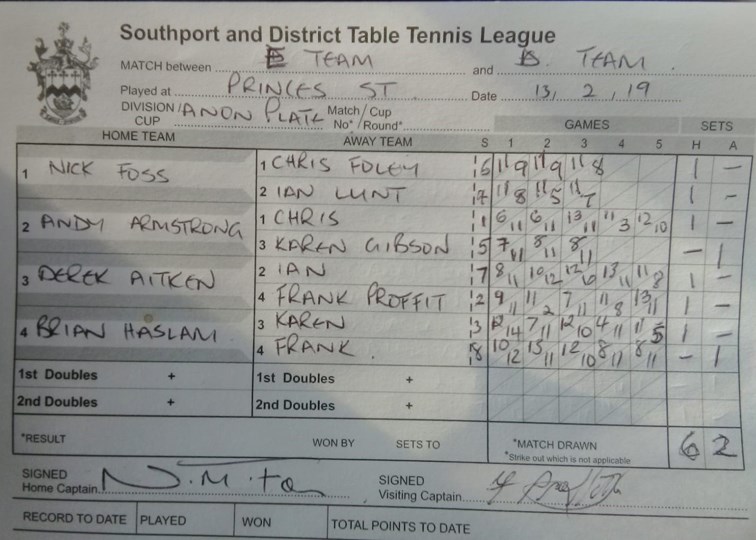 Southport and District Table Tennis League
MATCH between E TEAM and B. TEAM
Played at PRINCES ST Date 13, 2, 19
DIVISION / CUP ANON PLATE Match/Cup No*/Round*
GAMES SETS
HOME TEAM AWAY TEAM S 1 2 3 4 5 H A
1 NICK FOSS 1 CHRIS FOLEY 6 11 9 11 9 11 8 1 –
2 IAN LUNT 7 11 8 11 5 11 7 1 –
2 ANDY ARMSTRONG 1 CHRIS 1 6 11 6 11 13 11 11 3 12 10 1 –
3 KAREN GIBSON 5 7 11 8 11 8 11 – 1
3 DEREK AITKEN 2 IAN 7 8 11 10 12 12 10 13 11 11 8 1 –
4 FRANK PROFFIT 2 9 11 11 2 7 11 11 8 13 11 1 –
4 BRIAN HASLAM 3 KAREN 3 12 14 7 11 12 10 4 11 11 5 1 –
4 FRANK 8 10 12 13 11 12 10 8 11 8 11 – 1
1st Doubles + 1st Doubles +
2nd Doubles + 2nd Doubles +
*RESULT WON BY SETS TO *MATCH DRAWN 6 2
*Strike out which is not applicable
SIGNED Home Captain SIGNED Visiting Captain
RECORD TO DATE PLAYED WON TOTAL POINTS TO DATE